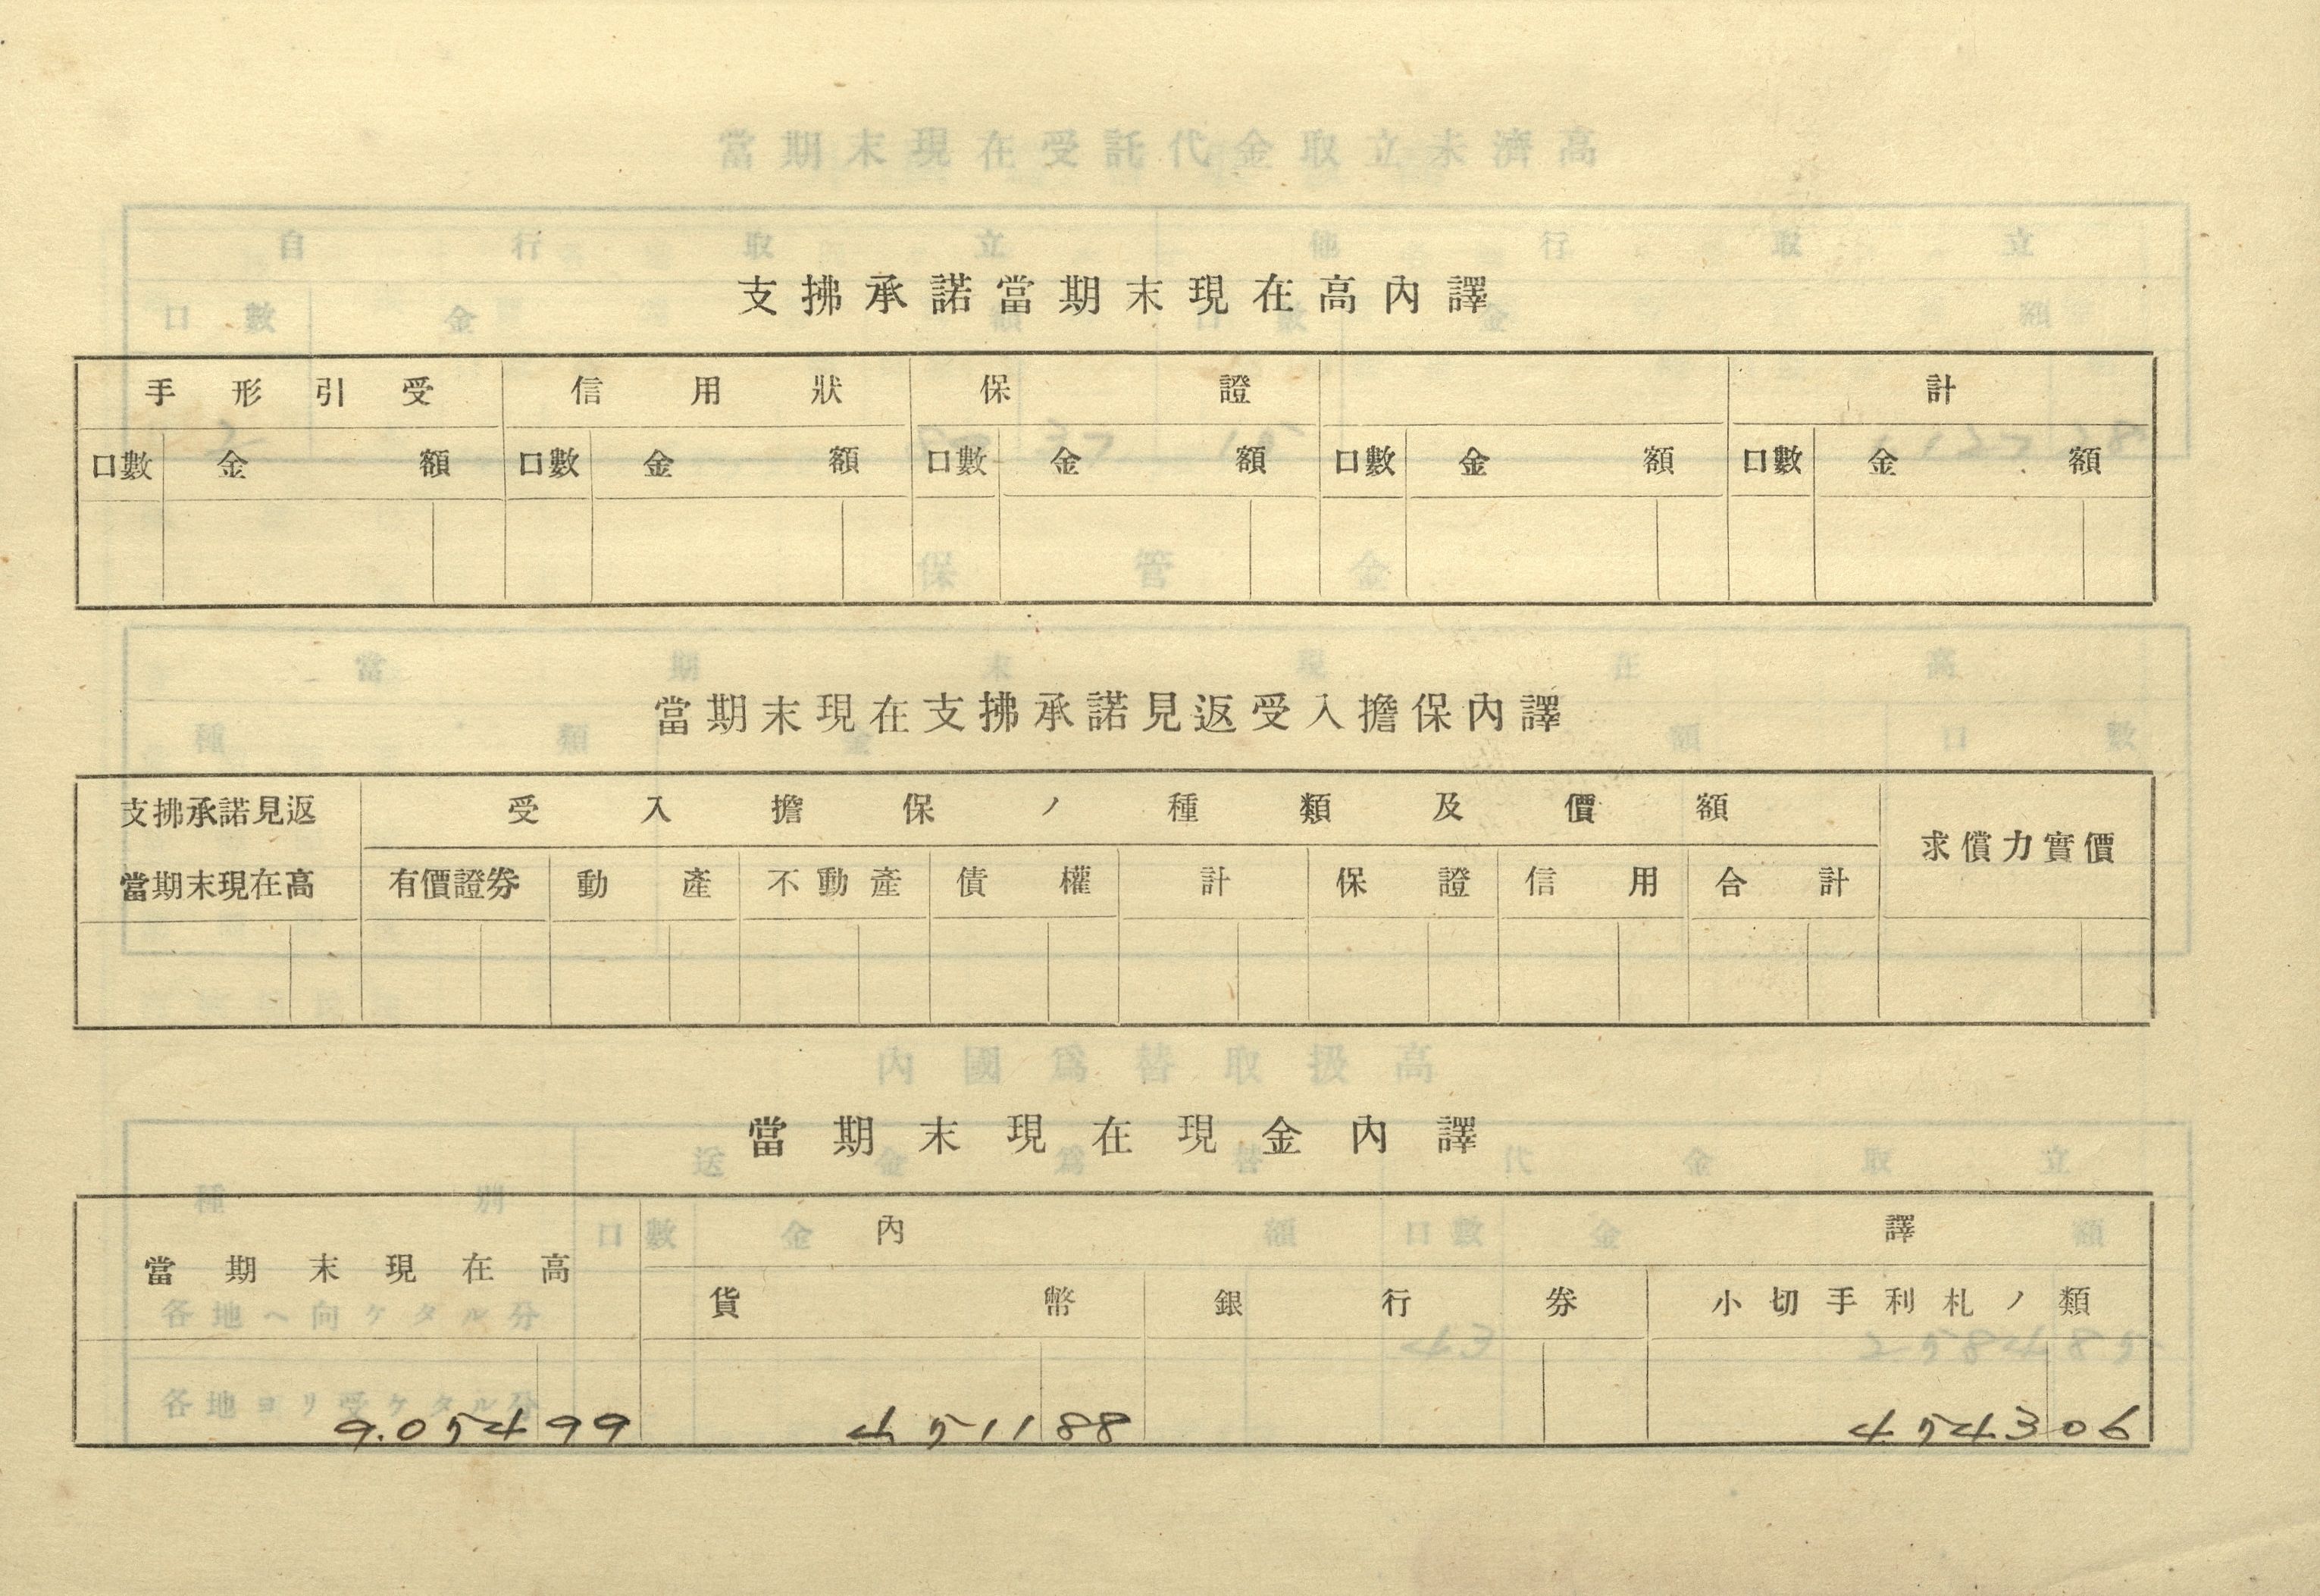 支拂承諾當期末現在高內譯
手形引受 信用狀 保證 計
口數 金額 口數 金額 口數 金額 口數 金額 口數 金額
當期末現在支拂承諾見返受入擔保內譯
支拂承諾見返 受入擔保ノ種類及價額 求償力實價
當期末現在高 有價證券 動產 不動產 債權 計 保證 信用 合計
當期末現在現金內譯
當期末現在高 內譯
貨幣 銀行券 小切手利札ノ類
9.05499 451188 454306